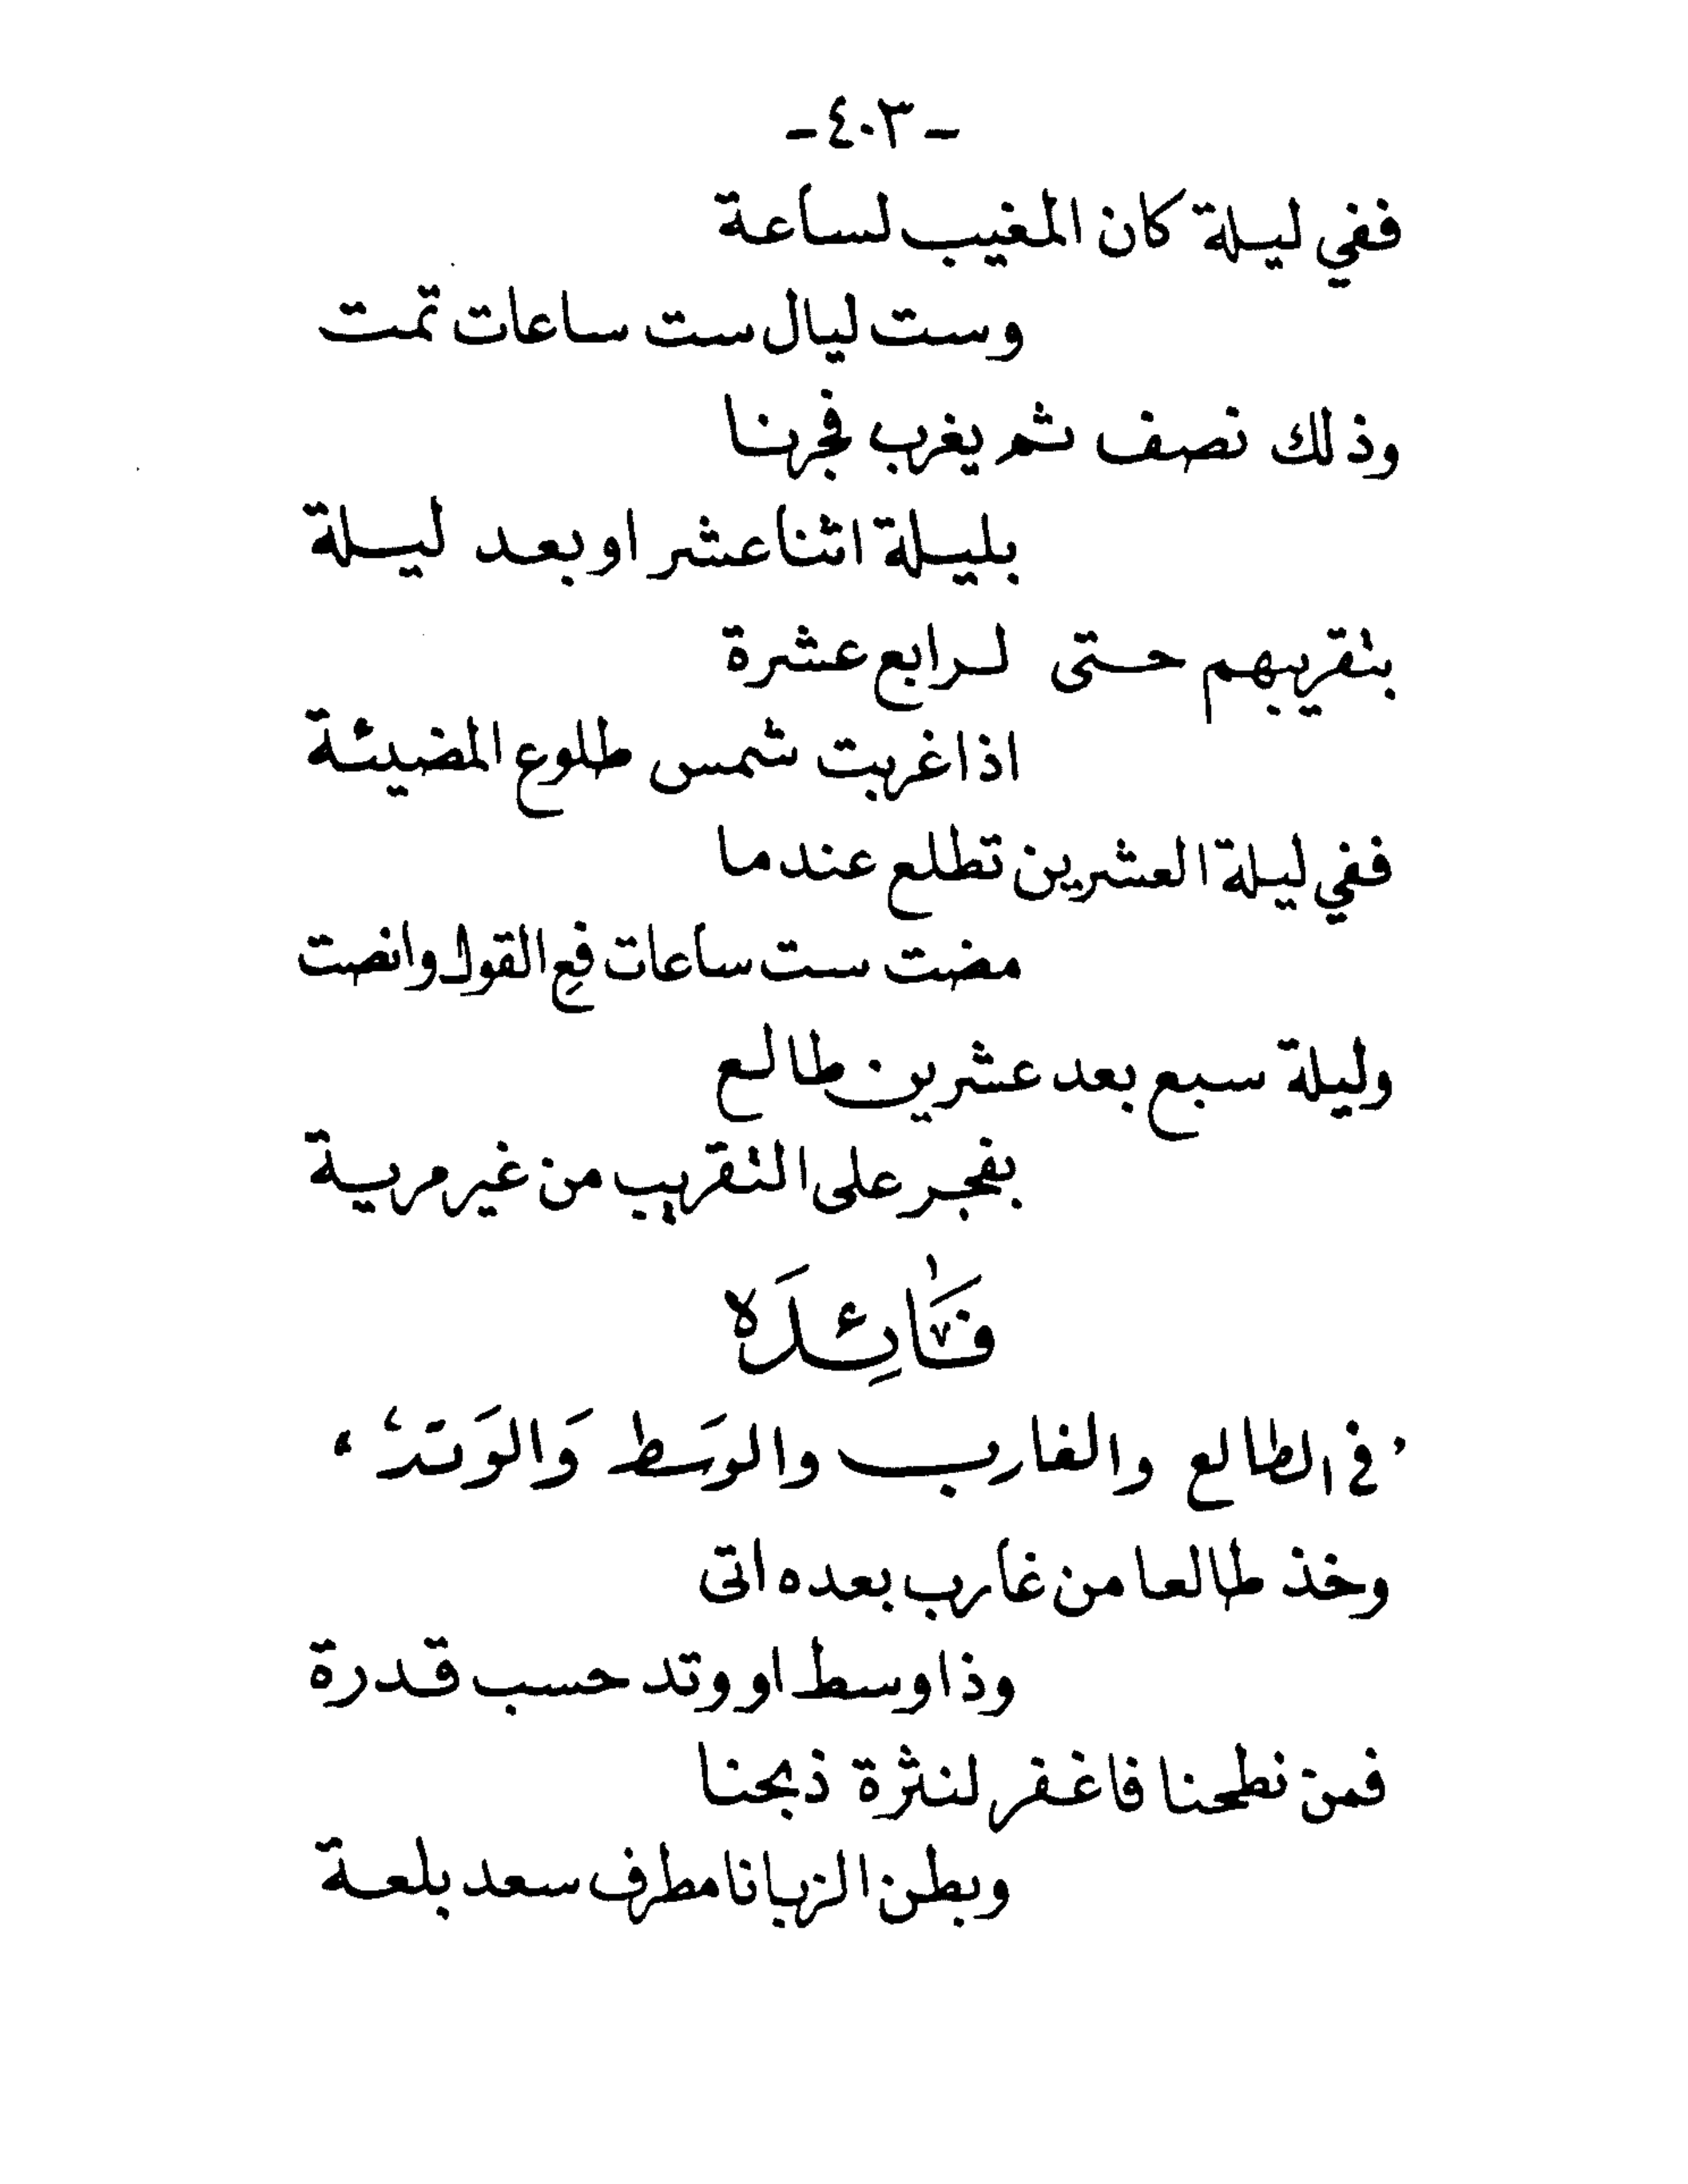 -٤٠٣-
ففي ليلة كان المغيب لساعة
وست ليال ست ساعات تمت
وذلك نصف ثم يغرب فجرنا
بليلة اثنا عشر او بعد ليلة
بتقريبهم حتى لرابع عشرة
اذا غربت شمس طلوع المضيئة
ففي ليلة العشرين تطلع عندما
مضت ست ساعات فع القول وانصت
وليلة سبع بعد عشرين طالع
بفجر على التقريب من غير مرية
فَائِدَه
، في الطالع والغارب والوَسَط وَالوَتَد ،
وخذ طالعا من غارب بعده اتى
وذا وسط او وتد حسب قدرة
فمن نطحنا فاغفر لنثرة ذبحنا
وبطن الزبانا مطرف سعد بلعة